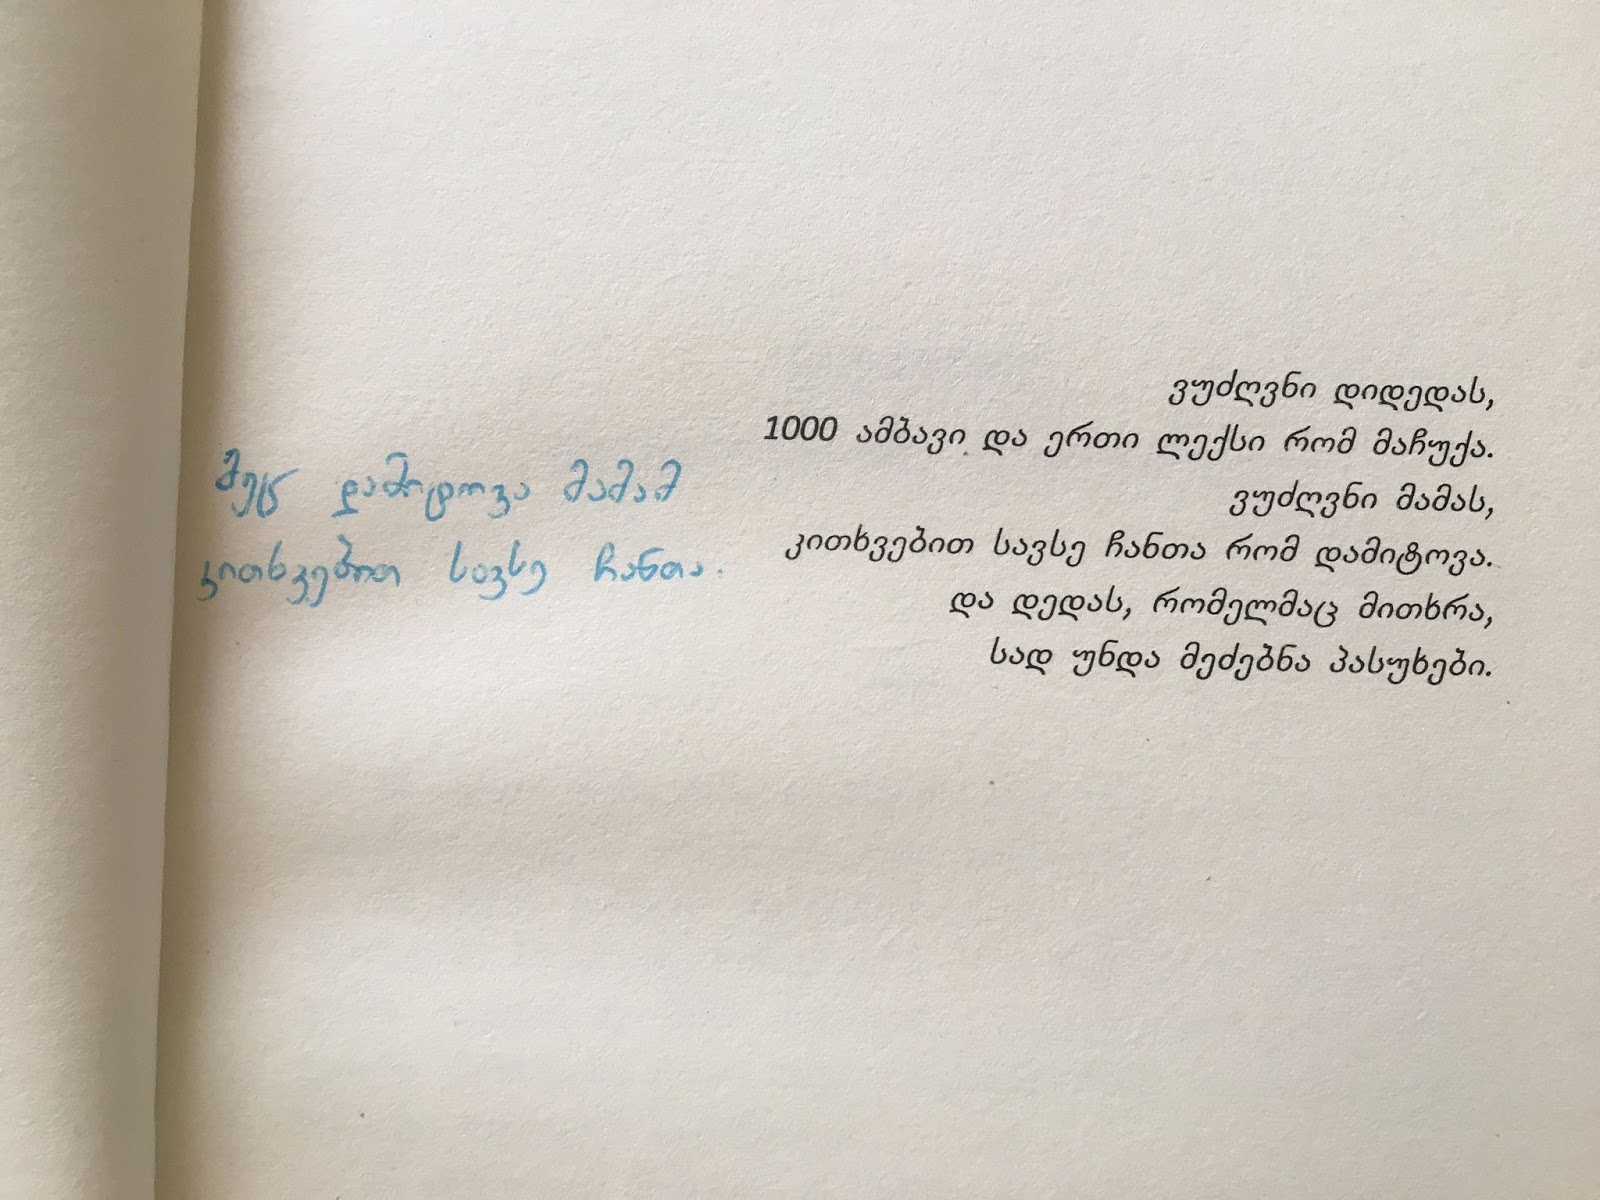 ვუძღვნი დიდედას,
1000 ამბავი და ერთი ლექსი რომ მაჩუქა.
ვუძღვნი მამას,
კითხვებით სავსე ჩანთა რომ დამიტოვა.
და დედას, რომელმაც მითხრა,
სად უნდა მეძებნა პასუხები.
მეც დამიტოვა მამამ
კითხვებით სავსე ჩანთა.